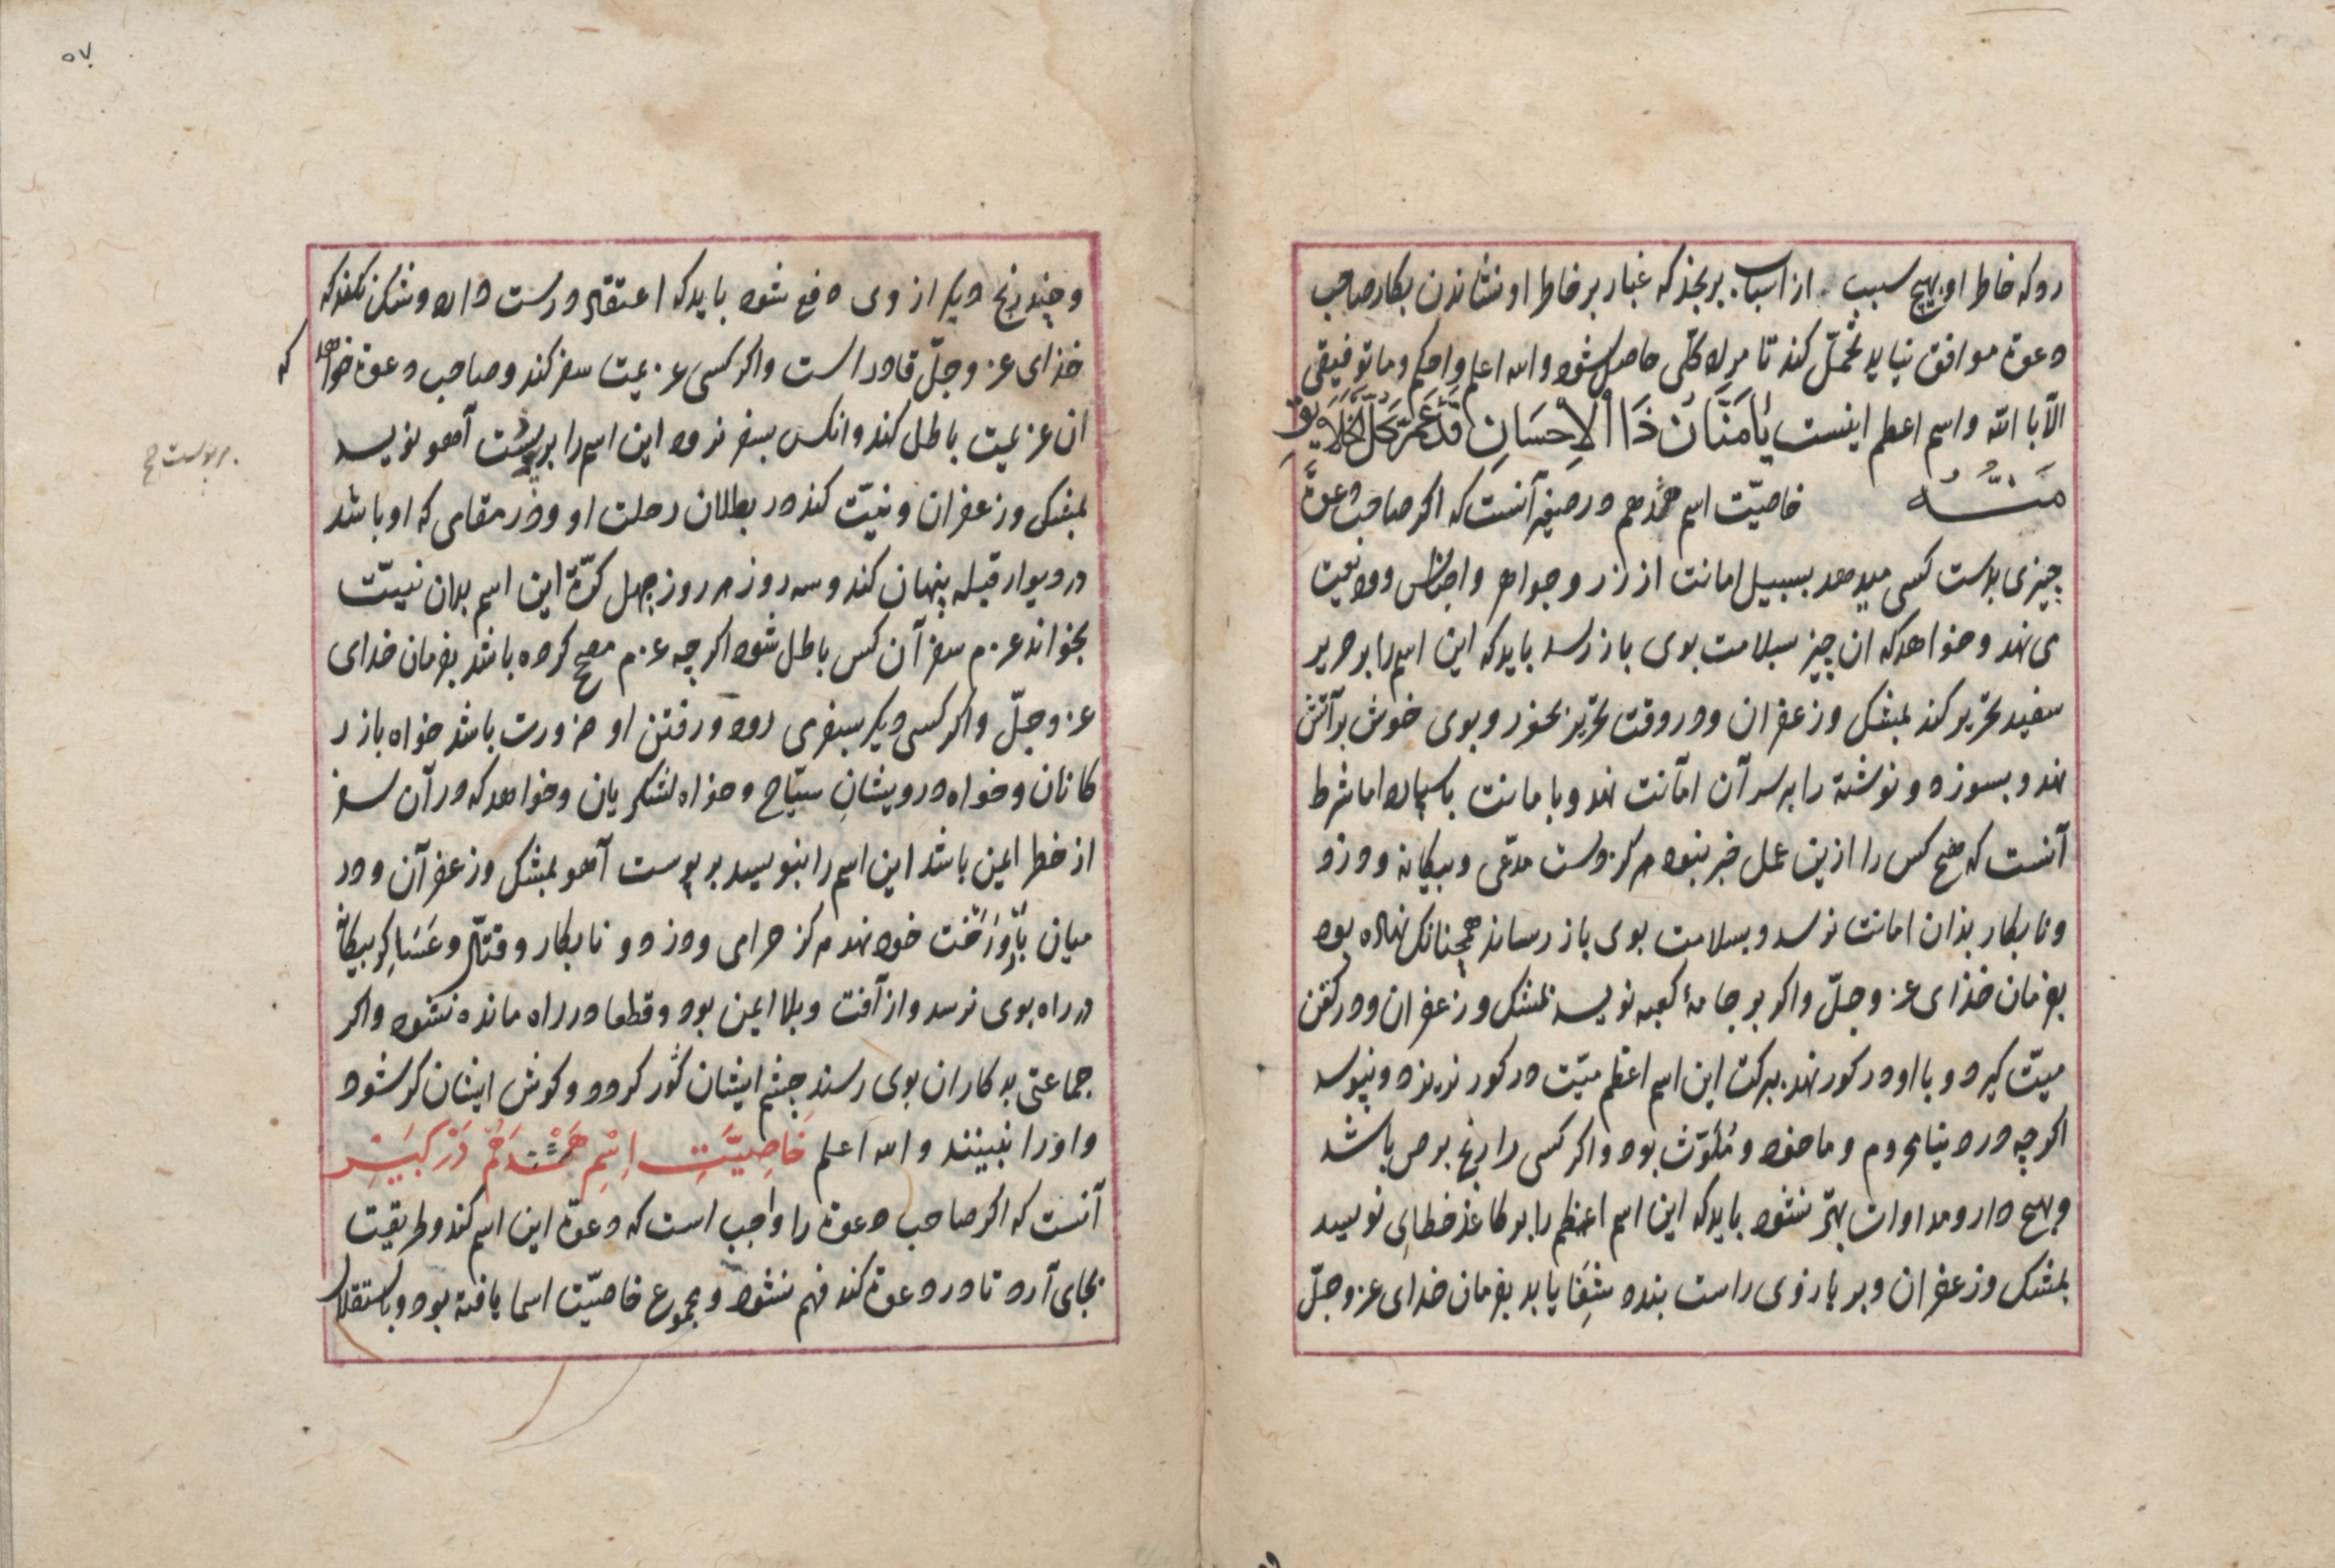 رو که خاطر او بهیچ سبب از اسباب برنجد که غبار بر خاطر او نشاندن بکار صاحب
دعوة موافق نیاید تحمّل کند تا مراد کلّی حاصل شود والله اعلم واحکم وما توفیقی
الّا بالله واسم اعظم اینست یَا مَنَّانُ ذَا الْاِحْسَانِ قَدْ عَمَّ کُلَّ الْخَلَایِقِ
مَنُّهُ خاصیّت اسم هجدهم در صغیر آنست که اکر صاحب دعوة
چیزی بدست کسی میدهد بسبیل امانت از زر و جواهر و اجناس و ودیعت
می نهد و خواهد که ان چیز سلامت بوی باز رسد باید که این اسم را بر حریر
سفید تحریر کند بمشک و زعفران و در وقت تحریر بخور و بوی خوش بر آتش
نهد و بسوزد و نوشتة را بر سر آن امانت نهد و بامانت بسپارد اما شرط
آنست که هیچ کس را ازین عمل خبر نبود هرکز دست مدّعی و بیکانه و دزد
و نابکار بدان امانت نرسد و بسلامت بوی باز رساند همچنانکه نهاده بود
بفرمان خدای عز وجلّ واکر بر جامهٔ کعبه نویسد بمشک و زعفران و در کفن
میّت کیرد و با او در کور نهد ببرکت این اسم اعظم میّت در کور نریزد و نپوسد
اکرچه در دنیا محروم و ماخوذ و مُلَوَّث بود واکر کسی را رنج برص باشد
و بهیچ دارو مداوات بهتر نشود باید که این اسم اعظم را بر کاغذ خطایی نویسد
بمشک و زعفران و بر بازوی راست بندد شِفَا یابد بفرمان خدای عز وجلّ
۵۷
و چند رنج دیکر از وی دفع شود باید که اعتقاد درست دارد و شک نکند که
خدای عز وجلّ قادر است واکر کسی عزیمت سفر کند و صاحب دعوة خواهد که
ان عزیمت باطل کند وانکس بسفر نرود این اسم را بر پوست آهو نویسد
بمشک و زعفران و نیّت کند در بطلان رحلت او و در مقامی که او باشد
در دیوار قبله پنهان کند و سه روز هر روز چهل کرّة این اسم بدان نیّت
بخواند عزم سفر آن کس باطل شود اکرچه عزم مصحح کرده باشد بفرمان خدای
عز وجلّ واکر کسی دیکر بسفری رود و رفتن او ضرورت باشد خواه بازر
کانان و خواه درویشانِ سیّاح و خواه لشکریان و خواهد که در آن سفر
از خطر ایمن باشد این اسم را بنویسد بر پوست آهو بمشک و زعفران و در
میان بار و رَخْت خود نهد هرکز حرامی و دزد و نابکار و قتّال و عَسَاکِر بیکانه
در راه بوی نرسد و از آفت و بلا ایمن بود و قطعا در راه مانده نشود واکر
جماعتی بدکاران بوی رسند چشم ایشان کور کردد و کوش ایشان کر شود
و او را نبینند والله اعلم خَاصِیَّتِ اِسْمِ هَشْدَهُم دَرْ کَبِیر
آنست که اکر صاحب دعوة را واجب است که دعوة این اسم کند و طریقت
بجای آرد تا در دعوة کند فهم نشود و مجموع خاصیّت اسما یافته بود و باستقلال
بر پوست صح